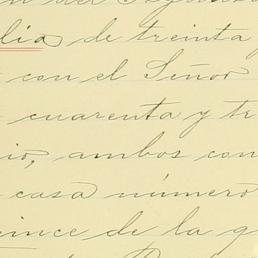 lia de treinta y
con el Señor
cuarenta y tr
io, ambos con
casa número
ince de la q